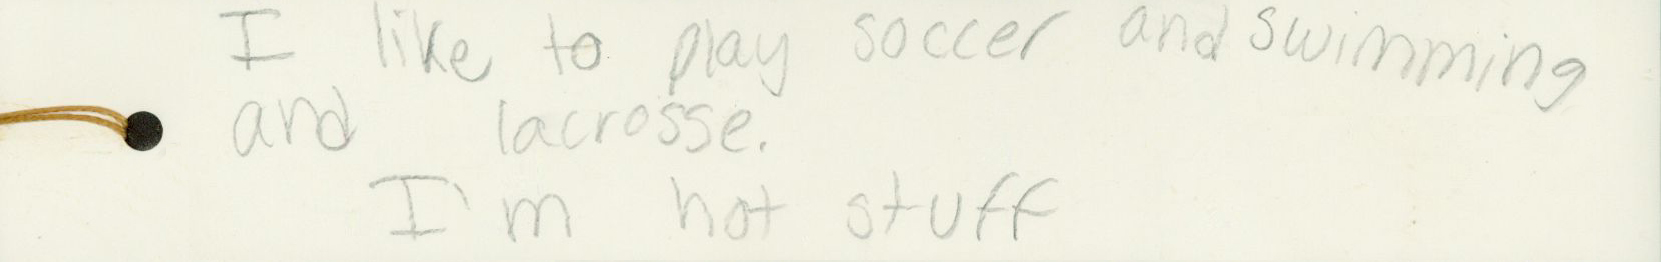 I like to play soccer and swimming
and lacrosse.
I'm hot stuff